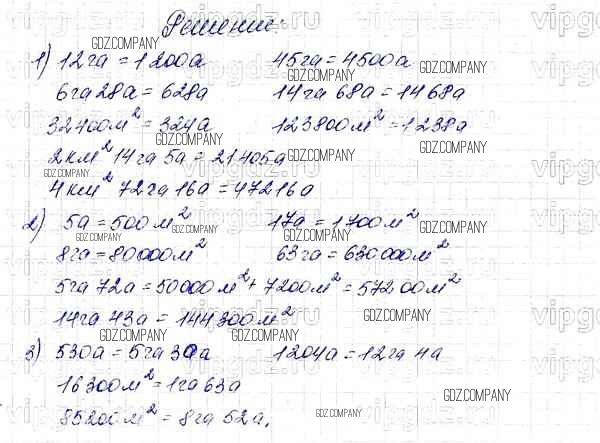 Решение:
1) 12га = 1200а 45га = 4500а
6га 28а = 628а 14га 68а = 1468а
32400м² = 324а 123800м² = 1238а
2км² 14га 5а = 21405а
4км² 72га 16а = 47216а
2) 5а = 500м² 17а = 1700м²
8га = 80000м² 63га = 630000м²
5га 72а = 50000м² + 7200м² = 57200м²
14га 43а = 144300м²
3) 530а = 5га 30а 1204а = 12га 4а
16300м² = 1га 63а
85200м² = 8га 52а.
GDZ.COMPANY
vipgdz.ru